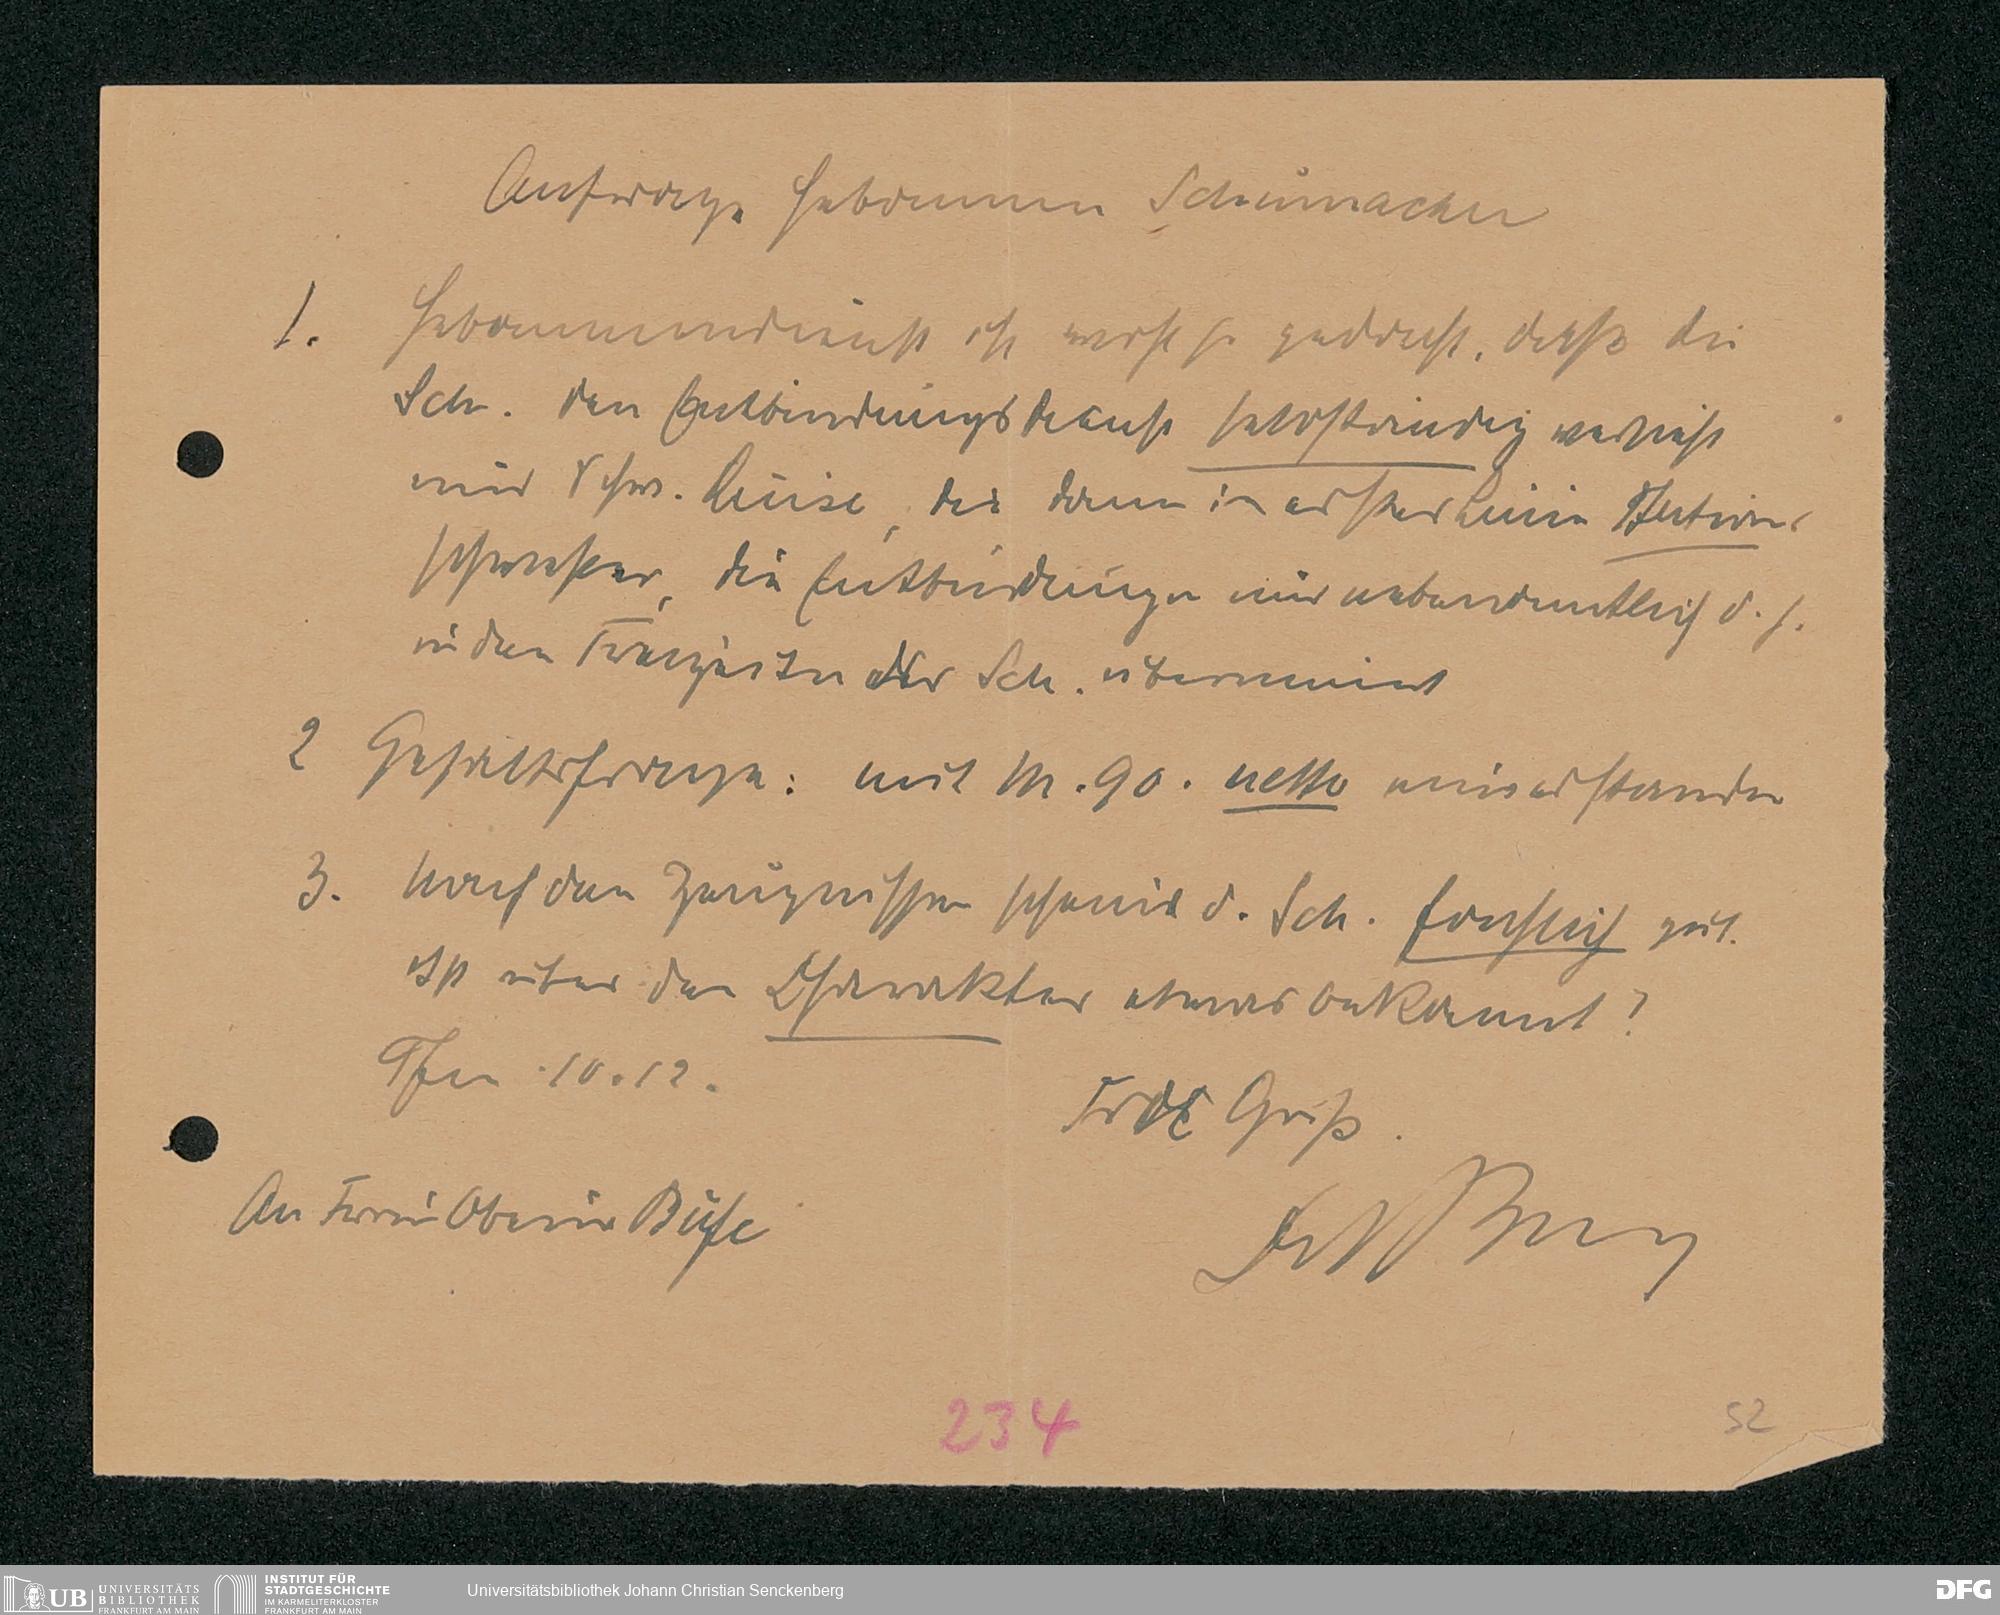 Anfrage Hebamme Schumacher
1. Hebammendienst ist wohl so gedacht, dass die
Sch. den Entbindungsdienst selbständig versieht
und Schw. Luise, die dann in erster Linie Stations
schwester, die Entbindungen nur nebenamtlich d. h.
in den Freizeiten der Sch. übernimmt
2 Gehaltsfrage: mit M. 90. netto einverstanden
3. Nach den Zeugnissen scheint d. Sch. fachlich gut.
Ist über den Charakter etwas bekannt?
Ffm 10.12.
Frdl Gruß.
An Frau Oberin Buhe
234
52
UB UNIVERSITÄTS
BIBLIOTHEK
FRANKFURT AM MAIN
INSTITUT FÜR
STADTGESCHICHTE
IM KARMELITERKLOSTER
FRANKFURT AM MAIN
Universitätsbibliothek Johann Christian Senckenberg
DFG